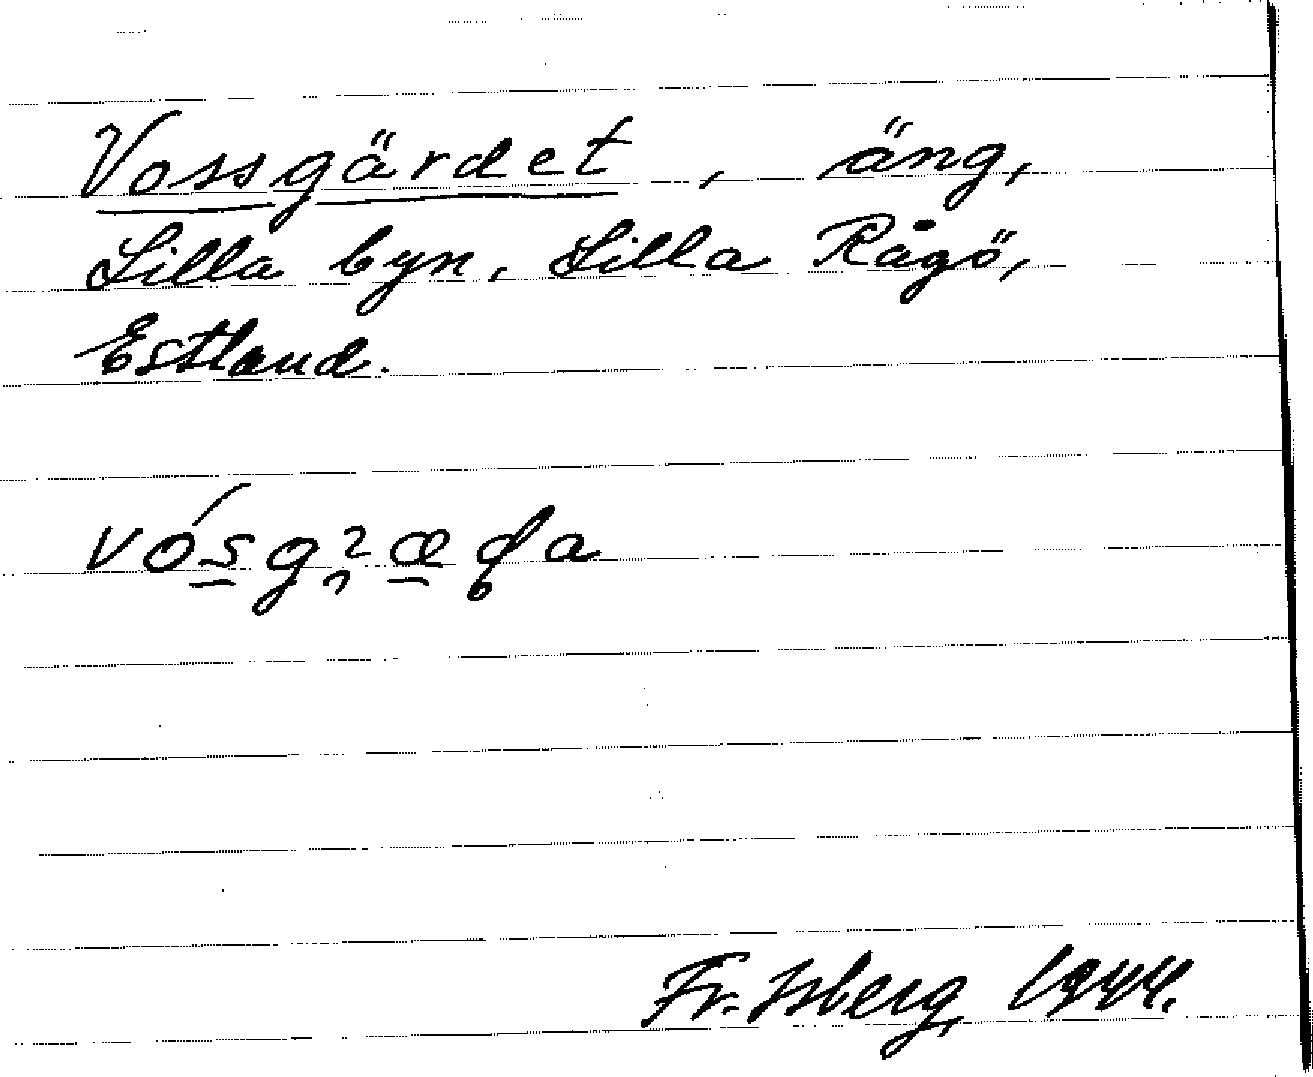 Vossgärdet, äng,
Lilla byn, Lilla Rågö,
Estland.
Fr. Isberg, 1944.